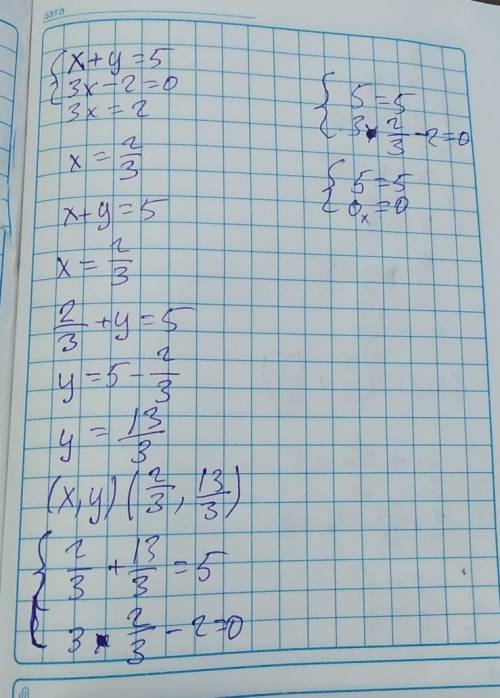 дата
{ x+y=5
3x-2=0
3x=2
x = 2/3
x+y=5
x = 2/3
2/3 +y=5
y=5- 2/3
y = 13/3
(x,y) ( 2/3 , 13/3 )
{ 2/3 + 13/3 =5
3 · 2/3 -2=0
{ 5=5
3 · 2/3 -2=0
{ 5=5
0ₓ=0